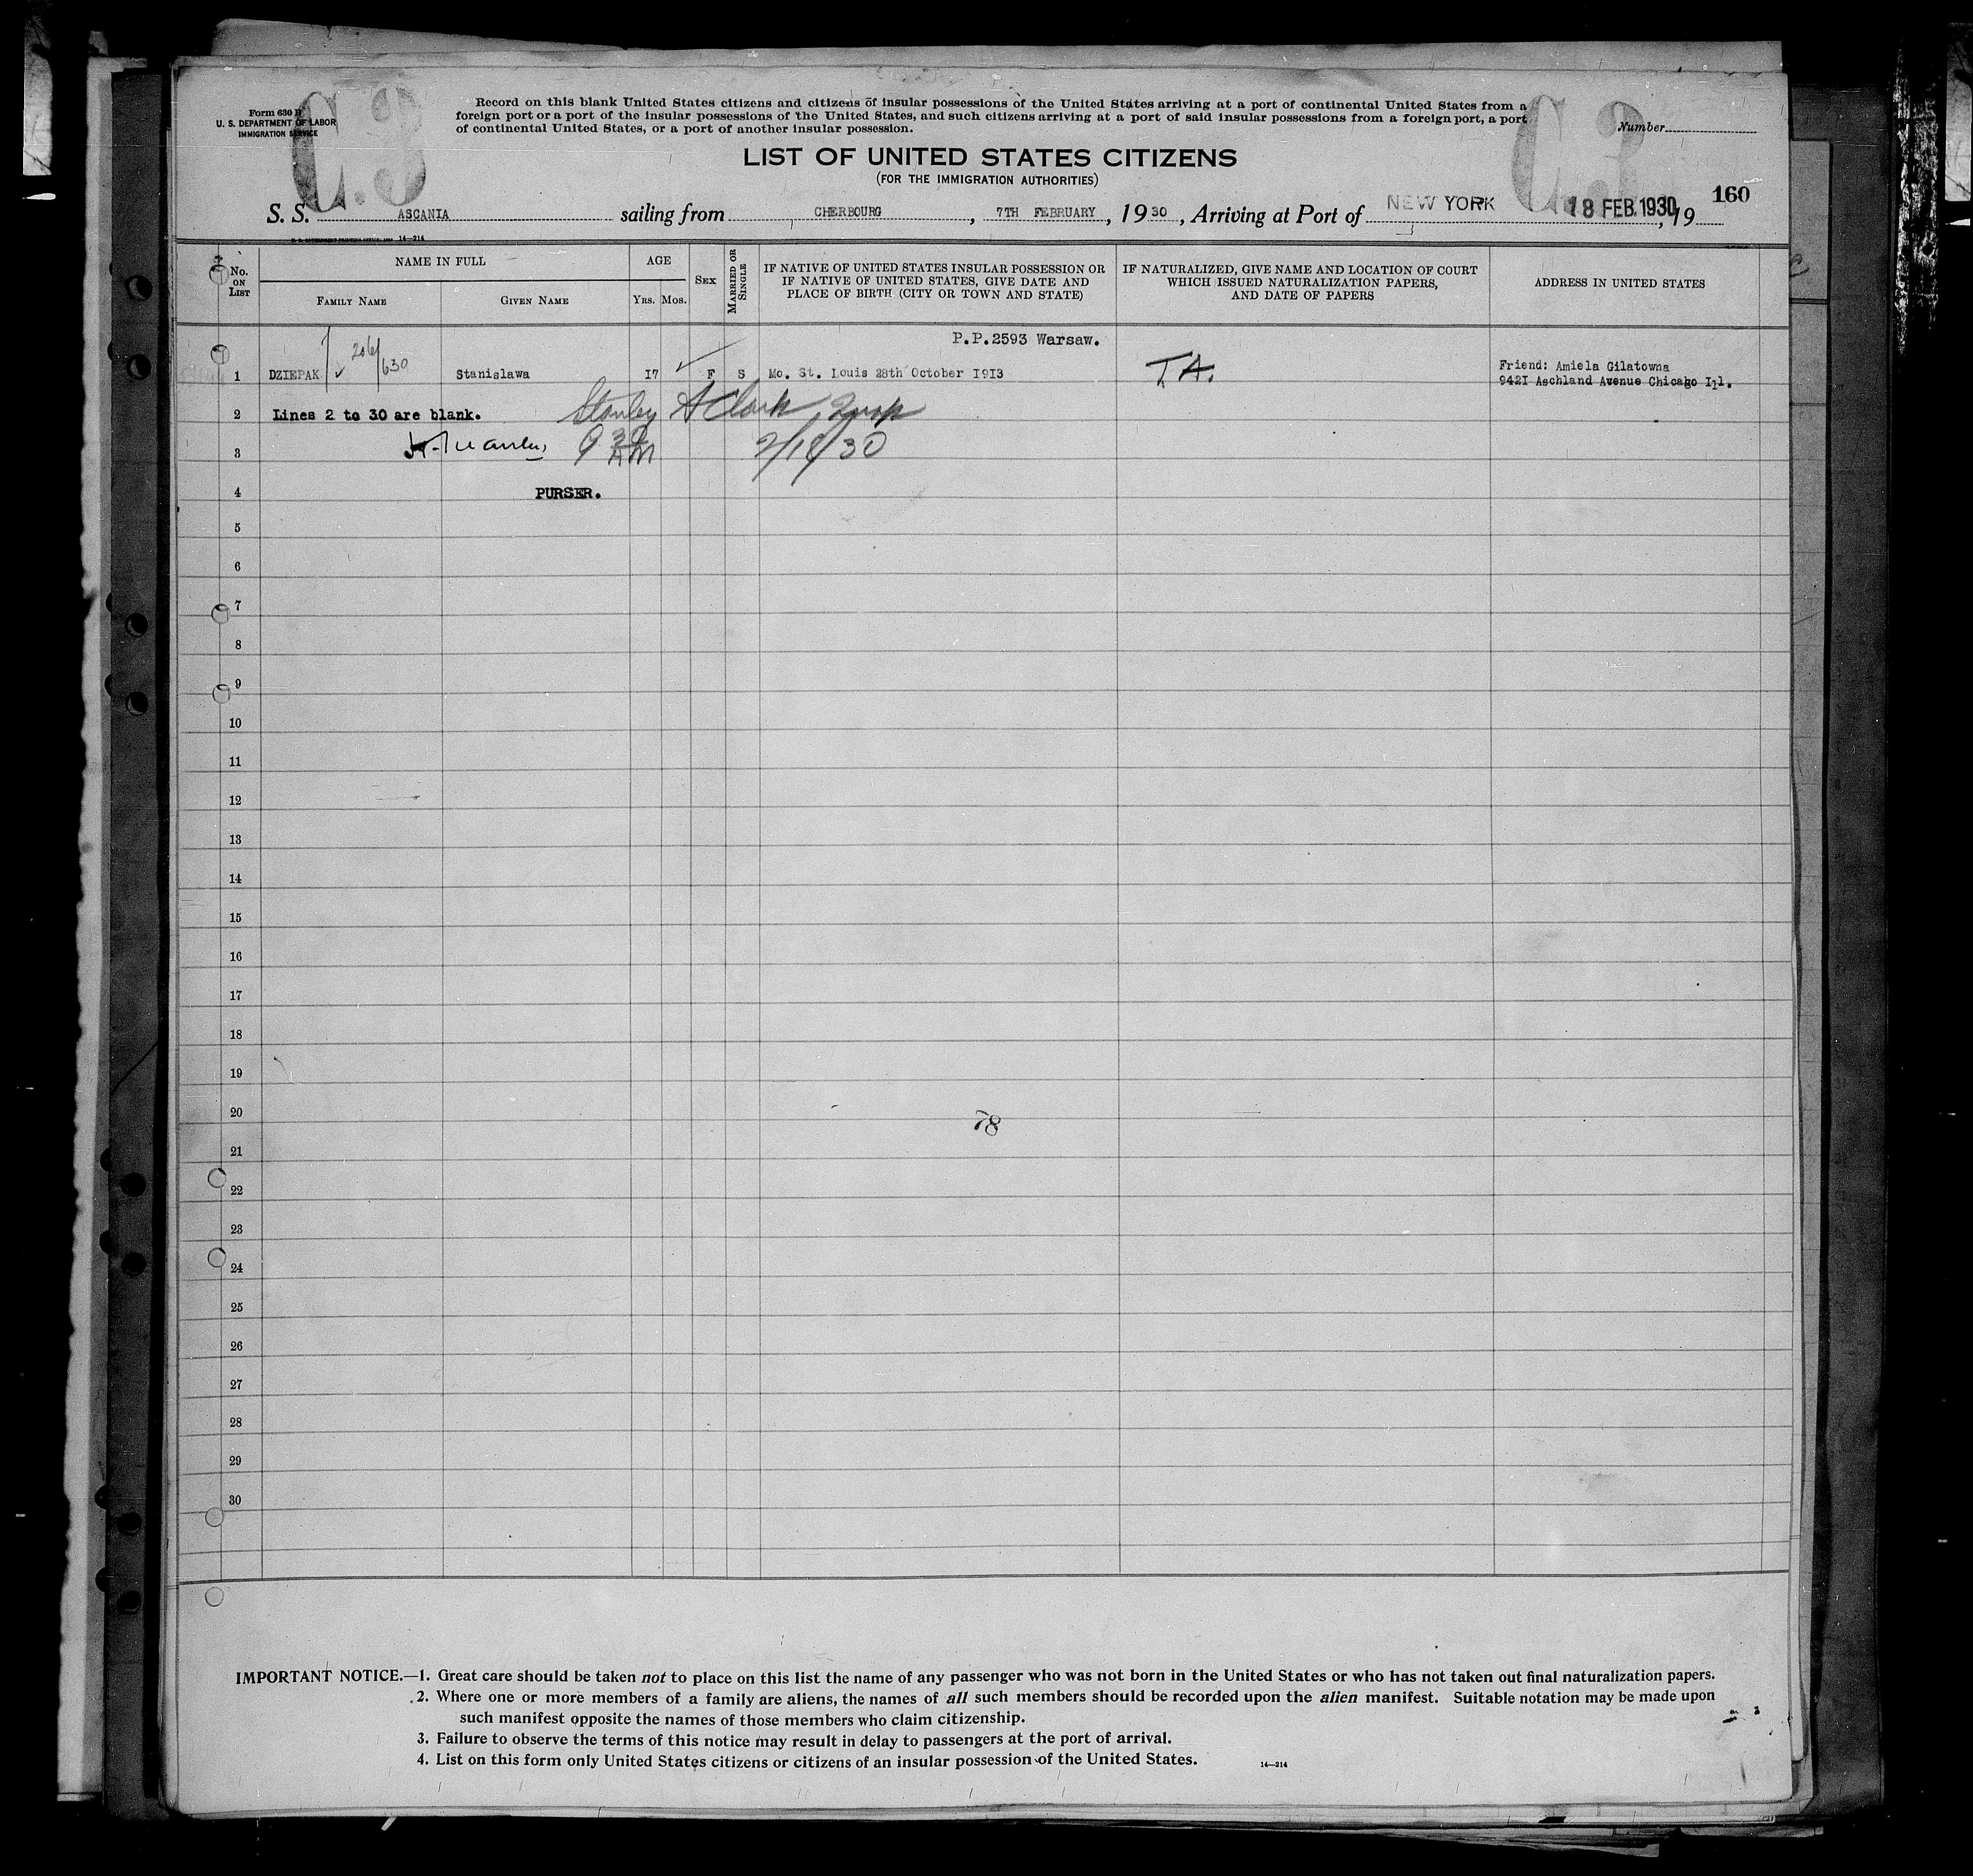 C.3
C.3
Form 630 B
U. S. DEPARTMENT OF LABOR
IMMIGRATION SERVICE
Record on this blank United States citizens and citizens of insular possessions of the United States arriving at a port of continental United States from a
foreign port or a port of the insular possessions of the United States, and such citizens arriving at a port of said insular possessions from a foreign port, a port
of continental United States, or a port of another insular possession.
Number
LIST OF UNITED STATES CITIZENS
(FOR THE IMMIGRATION AUTHORITIES)
160
S. S. ASCANIA sailing from CHERBOURG, 7TH FEBRUARY, 1930, Arriving at Port of NEW YORK 18 FEB. 1930, 19
U. S. GOVERNMENT PRINTING OFFICE 14—214
No. ON LIST
NAME IN FULL
FAMILY NAME
GIVEN NAME
AGE
YRS. MOS.
SEX
MARRIED OR SINGLE
IF NATIVE OF UNITED STATES INSULAR POSSESSION OR
IF NATIVE OF UNITED STATES, GIVE DATE AND
PLACE OF BIRTH (CITY OR TOWN AND STATE)
IF NATURALIZED, GIVE NAME AND LOCATION OF COURT
WHICH ISSUED NATURALIZATION PAPERS,
AND DATE OF PAPERS
ADDRESS IN UNITED STATES
P.P.2593 Warsaw.
206/630
1 DZIEPAK Stanislawa 17 F S Mo. St. Louis 28th October 1913 T.A. Friend: Amiela Gilatowna
9421 Aschland Avenue Chicago Ill.
2 Lines 2 to 30 are blank. Stanley A Clark Insp
3 9 30 AM 2/18/30
4 PURSER.
5
6
7
8
9
10
11
12
13
14
15
16
17
18
19
20
78
21
22
23
24
25
26
27
28
29
30
IMPORTANT NOTICE.—1. Great care should be taken not to place on this list the name of any passenger who was not born in the United States or who has not taken out final naturalization papers.
2. Where one or more members of a family are aliens, the names of all such members should be recorded upon the alien manifest. Suitable notation may be made upon
such manifest opposite the names of those members who claim citizenship.
3. Failure to observe the terms of this notice may result in delay to passengers at the port of arrival.
4. List on this form only United States citizens or citizens of an insular possession of the United States.
14—214